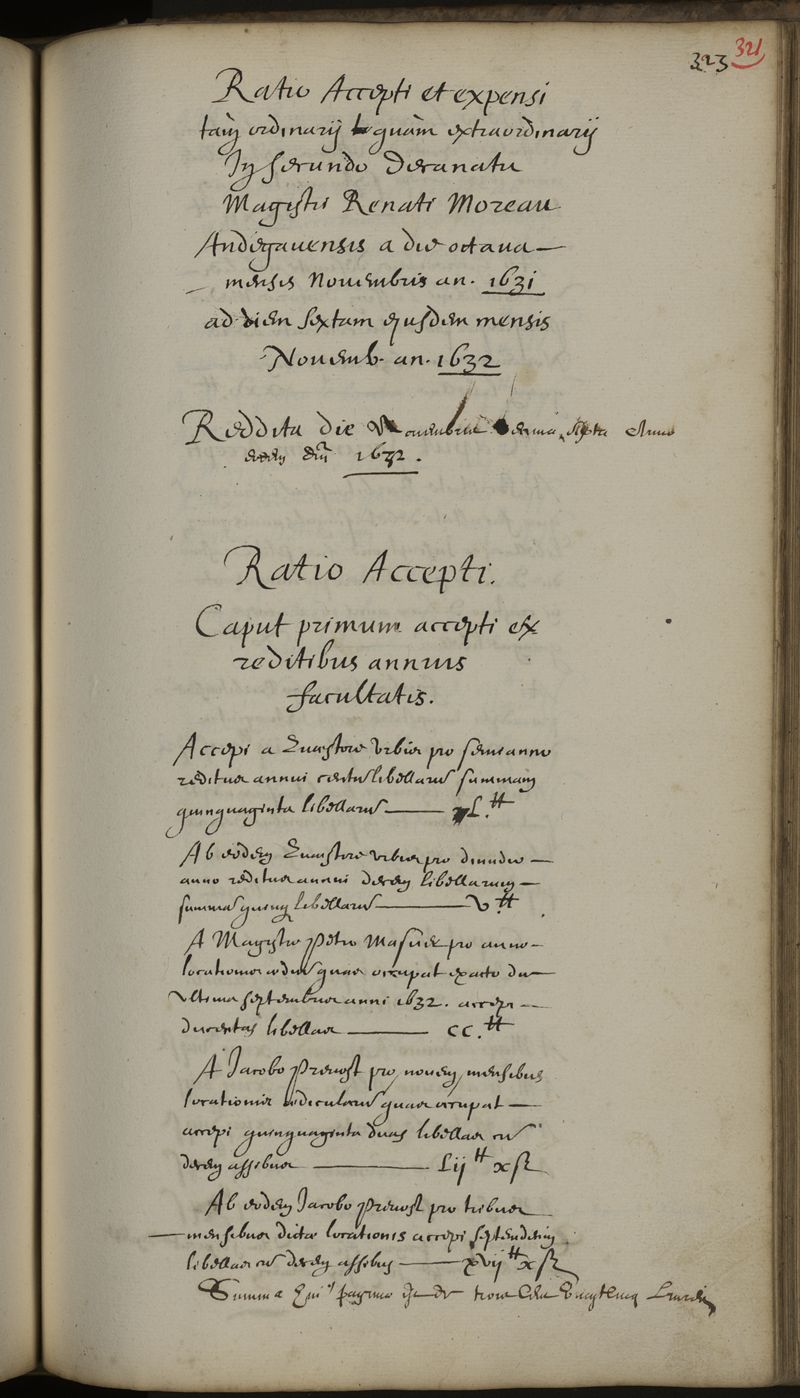 323 321
Ratio Accepti et expensi
tam ordinarij quàm extraordinarij
In secundo Decanatu
Magistri Renati Moreau
Andegauensis a die octaua
mensis Nouembris an. 1631
ad diem sextam ejusdem mensis
Nouemb. an. 1632
Reddita die Nouembris Anno
1632.
Ratio Accepti.
Caput primum accepti ex
reditibus annuis
facultatis.
Accepi a Quaestore vrbis pro semianno
reditus annui centum libellarum summam
quinquaginta libellarum L.tt
Ab eodem Quaestore vrbis pro dimidio
anno reditus annui decem libellarum
summam quinque libellarum v tt.
A Magistro Petro Masure pro anno
locationis aedium quas occupat exacto die
vltima septembris anni 1632. accepi
ducentas libellas CC.tt
A Jacobo Preuost pro nouem mensibus
locationis aedicularum quas occupat
accepi quinquaginta duas libellas cum
decem assibus Lij tt x ſ
Ab eodem Jacobo Preuost pro tribus
mensibus dictae locationis accepi septendecim
libellas cum decem assibus xvij tt x ſ
Summa paginae